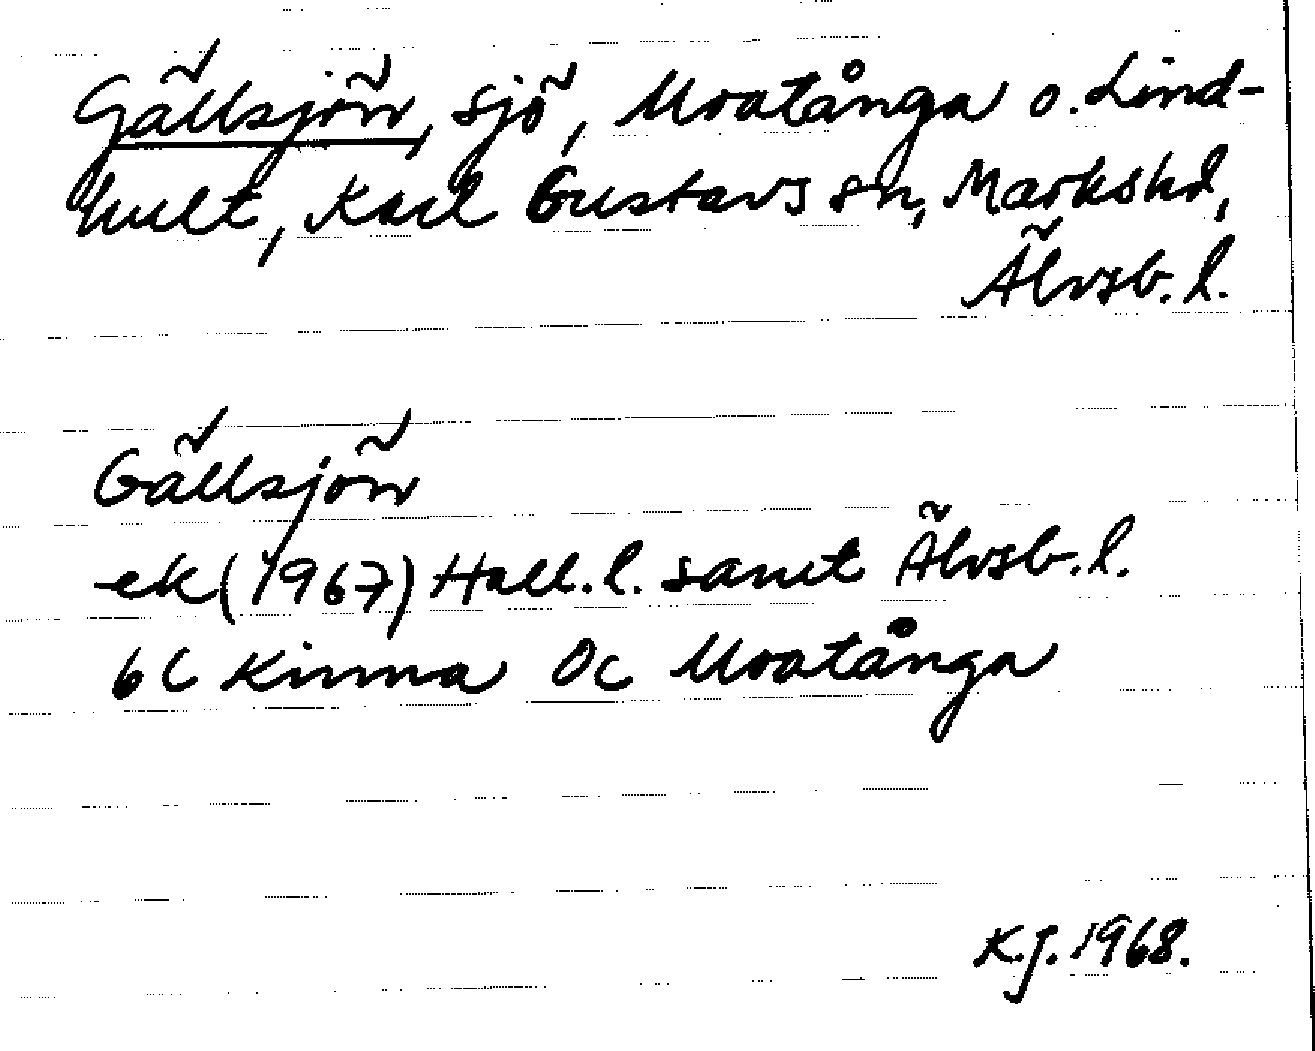 Gällsjön, sjö, Moatånga o. Lind-
hult, Karl Gustavs sn, Markshd,
Älvsb. l.
Gällsjön
ek (1967) Hall. l. samt Älvsb. l.
6C Kinna 0c Moatånga
K.J. 1968.